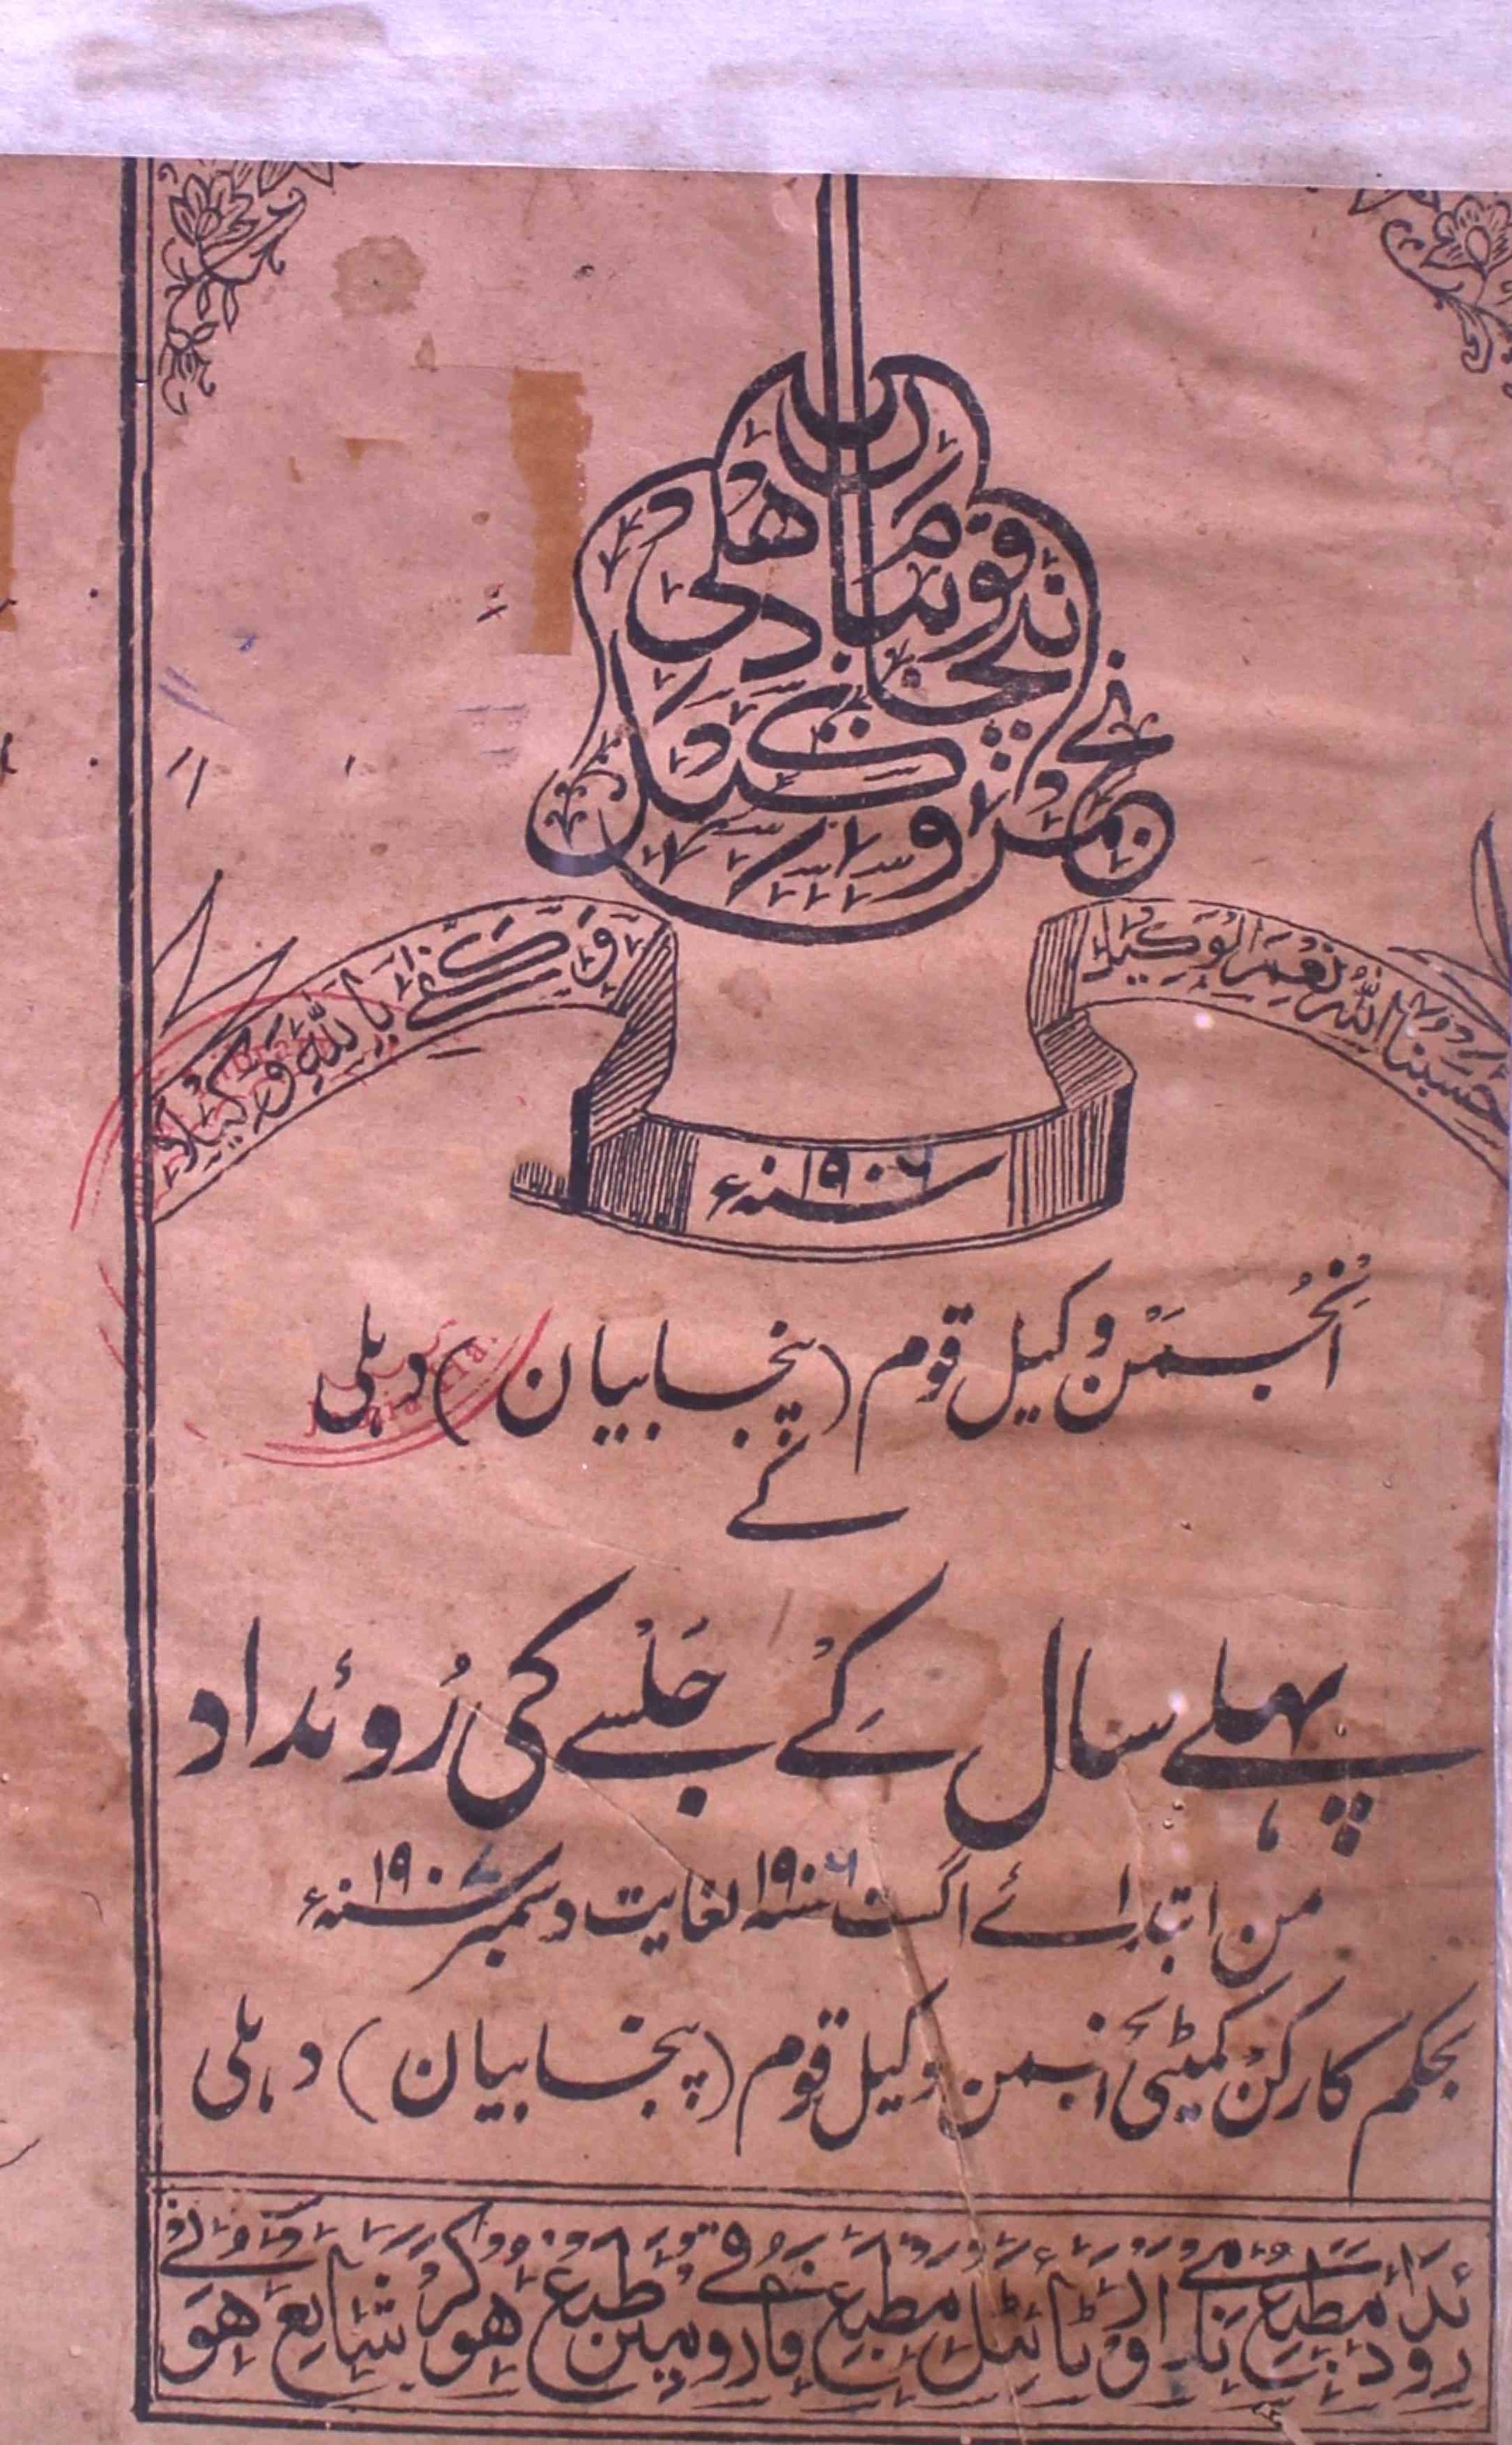 روئداد انجمن وکیل قوم پنجابیان دهلی
حسبنا الله نعم الوکیل
وکفی بالله وکیلا
سنہ ۱۹۰۶ء
انجمن وکیل قوم (پنجابیان) دہلی
کے
پہلے سال کے جلسے کی روئداد
من ابتدائے اگست سنہ ۱۹۰۶ لغایت دسمبر سنہ ۱۹۰۷ء
بحکم کارکن کمیٹی انجمن وکیل قوم (پنجابیان) دہلی
روئداد مطبع میں اور ٹائٹل مطبع فاروقی میں طبع هوکر شایع هوئے